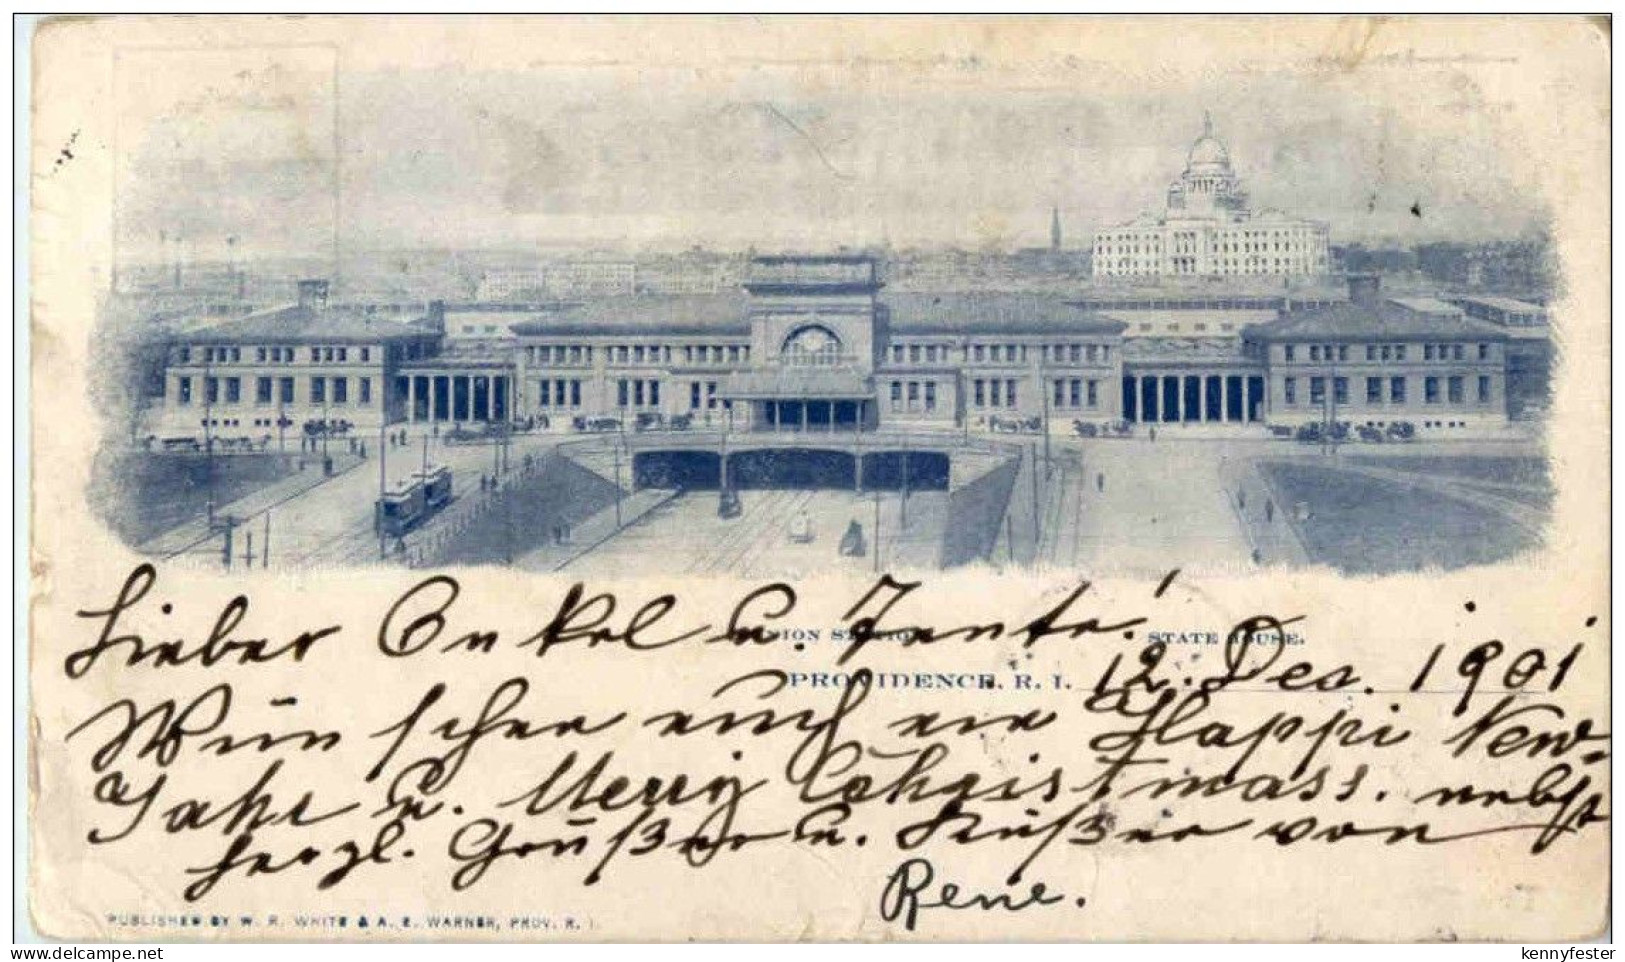 Lieber Onkel u. Tante!
UNION STATION. STATE HOUSE.
PROVIDENCE, R. I.
12. Dec. 1901
Wünschen euch ein Happi New-
Jahr u. Merry Christmass. nebst
herzl. Grüßen u. Küßen von
Rene.
PUBLISHED BY W. R. WHITE & A. E. WARNER, PROV. R. I.
delcampe.net
kennyfester